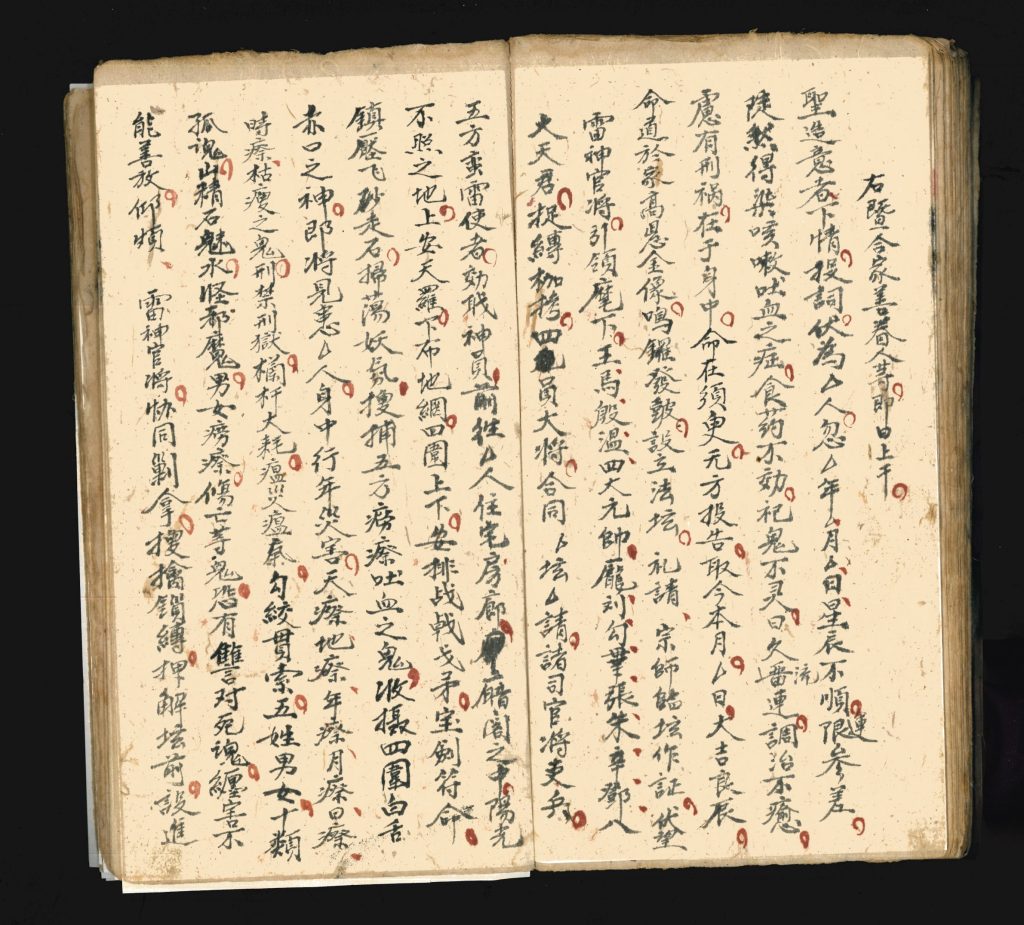 右暨合家善眷人等即日上干
聖造意者下情投詞伏為厶人忽厶年厶月厶日星辰不順限運參差
陡然得染咳嗽吐血之症食药不効祀鬼不灵日久流連調治不癒
慮有刑禍在于身中命在須臾无方投告取今本月厶日大吉良辰
命道於家高懸金像鳴鑼發皷設立法坛 礼請 宗師臨坛作証 伏望
雷神官将引領麾下王馬殷溫四大元帥龐刘勾畢張朱辛鄧八
大天君捉縛枷拷四員大将合同厶坛厶請諸司官将吏兵
五方蛮雷使者効職神員前往厶人住宅房廊暗阁之中陽光
不照之地上安天羅下布地網四圍上下安排战戟戈矛宝劍符命
鎮壓飞砂走石掃荡妖氛搜捕五方癆瘵吐血之鬼收摄四圍白舌
赤口之神即将見患厶人身中行年災害天瘵地瘵年瘵月瘵日瘵
時瘵枯瘦之鬼刑禁刑獄欄杆大耗瘟災瘟勾絞貫索五姓男女十類
孤魂山精石魅水怪都魔男女癆瘵傷亡等鬼恐有讐言对死魂纏害不
能善放仰煩 雷神官将恊同剿拿搜擒鎖縛押解坛前設進